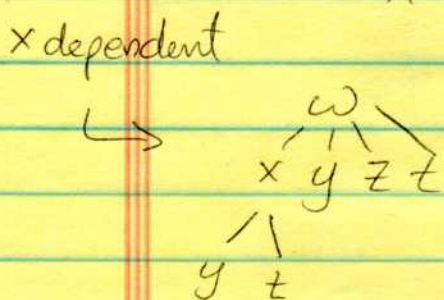 x dependent
w
x y z t
y t